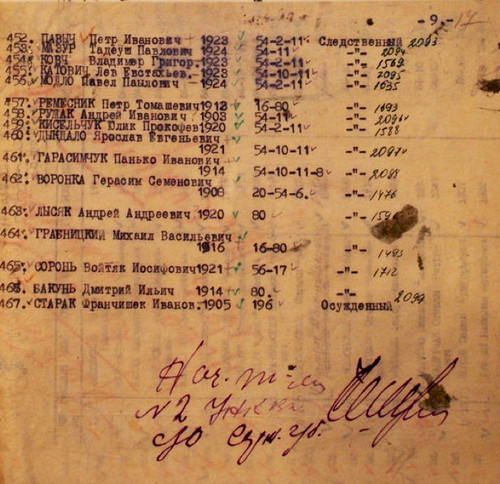 - 9. - 17
452. ПАВЫЧ Петр Иванович 1923 54-2-11 Следственный 2093
453. МАЗУР Тадеуш Павлович 1924 54-11 -"- 2094
454. КОВЧ Владимир Григор. 1923 54-2-11 -"- 1569
455. КАТОВИЧ Лев Евстахьев. 1923 54-10-11 -"- 2095
456. МОЛЛО Павел Павлович 1924 54-2-11 -"- 1635
457. РЕМЕСНИК Петр Томашевич 1912 16-80 -"- 1693
458. РУПАК Андрей Иванович 1903 54-11 -"- 2096
459. КИСЕЛЬЧУК Юлик Прокофев. 1920 54-2-11 -"- 1588
460. ДЫНДАЛО Ярослав Евгеньевич
1921 54-10-11 -"- 2097
461. ГАРАСИМЧУК Панько Иванович
1914 54-10-11-8 -"- 2098
462. ВОРОНКА Герасим Семенович
1908 20-54-6. -"- 1476
463. ЛЫСЯК Андрей Андреевич 1920 80 -"-
464. ГРАБНИЦКИЙ Михаил Васильевич
1916 16-80 -"- 1493
465. СОРОНЬ Войтяк Иосифович 1921 56-17 -"- 1712
466. БАКУНЬ Дмитрий Ильич 1914 80. -"- 2099
467. СТАРАК Франчишек Иванов. 1905 196 Осужденный
Нач.
№ 2
с/о